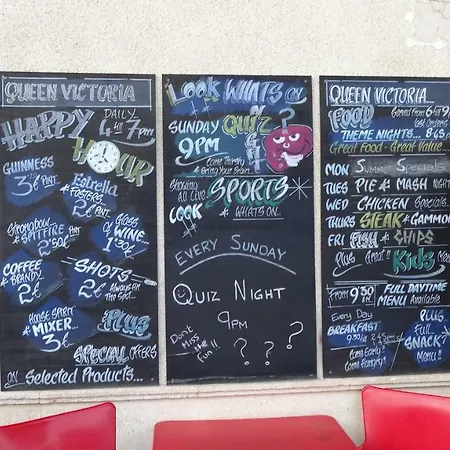 QUEEN VICTORIA
HAPPY
DAILY
4 till 7pm
HOUR
GUINNESS
3€ PINT
Estrella
& FOSTERS
2€ PINT
STRONGBOW
& SPITFIRE PINT
2'50€
GLASS
of
WINE
1'30€
COFFEE
& BRANDY
2€
SHOTS
2€ ALWAYS HIT
The Spot...
HOUSE SPIRIT
& MIXER
3€
PLUS
SPECIAL OFFERS
ON Selected Products...
LOOK WHATS ON
SUNDAY QUIZ
NIGHT
?
9PM
Come Thirsty
& Bring Your Brain...
Showing
All Live SPORTS
LOOK & WHATS ON...
EVERY SUNDAY
QUIZ NIGHT
9PM
Don't
Miss
the
Fun!!
? ? ?
QUEEN VICTORIA...
FOOD
Served From
THEME NIGHTS...
Great Food - Great Value...
MON Summer Specials
TUES PIE & MASH NIGHT
WED CHICKEN Specials...
THURS STEAK & GAMMON
FRI FISH & CHIPS
Plus Great!! Kids
From 9'30 am FULL DAYTIME
MENU Available
Every Day
BREAKFAST
9.30
Come Early!
Come Hungry!
PLUS
Full...
SNACK
Menu!!